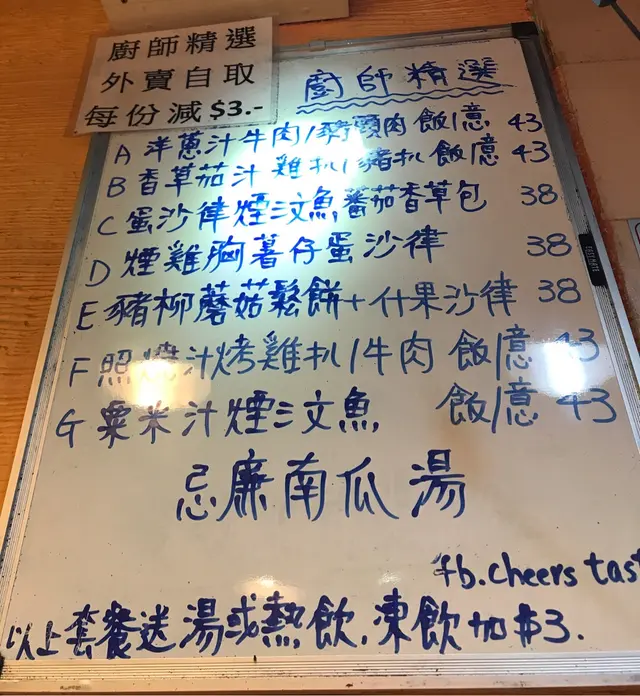 廚師精選
外賣自取
每份減$3.-
廚師精選
A 洋蔥汁牛肉/豬頸肉 飯/意 43
B 香草茄汁雞扒/豬扒 飯/意 43
C 蛋沙律煙三文魚蕃茄香草包 38
D 煙雞胸薯仔蛋沙律 38
E 豬柳蘑菇鬆餅+什果沙律 38
F 照燒汁烤雞扒/牛肉 飯/意 43
G 粟米汁煙三文魚 飯/意 43
忌廉南瓜湯
fb.cheers tast
以上套餐送湯或熱飲,凍飲加$3.